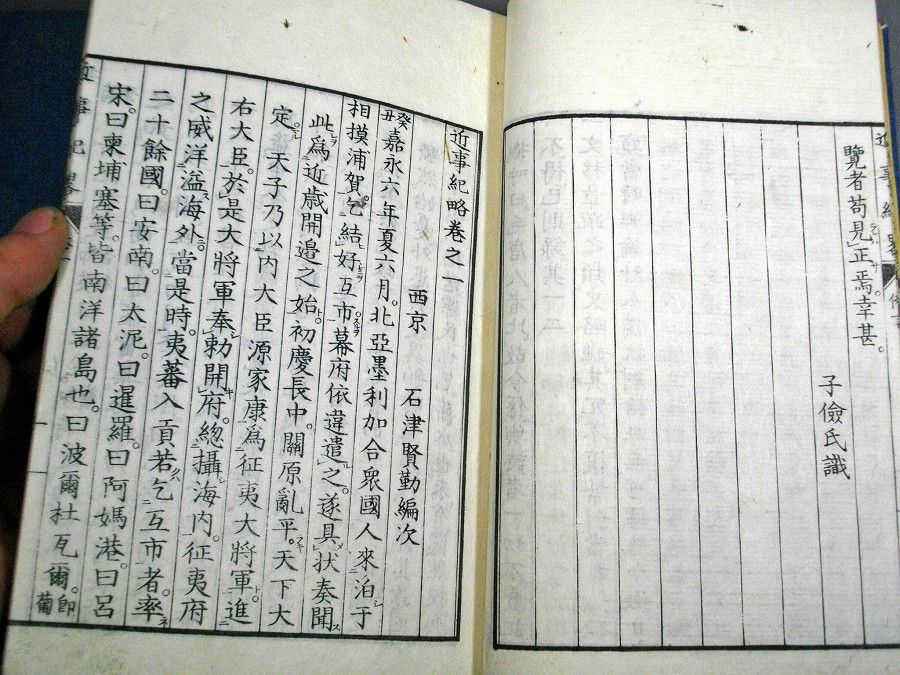 覽者苟見正焉。幸甚。
子儉氏識
近事紀略卷之一
西京 石津賢勤編次
癸丑嘉永六年夏六月。北亞墨利加合衆國人來泊于
相摸浦賀。乞結好互市。幕府依違遣之。遂具狀奏聞
此爲近歲開邊之始。初慶長中。關原亂平。天下大
定。天子乃以內大臣源家康爲征夷大將軍。進
右大臣。於是大將軍奉勅開府。總攝海內。征夷府
之威洋溢海外。當是時。夷蕃入貢若乞互市者。率
二十餘國。曰安南。曰太泥。曰暹羅。曰阿媽港。曰呂
宋。曰柬埔塞等。皆南洋諸島也。曰波爾杜瓦爾。卽葡